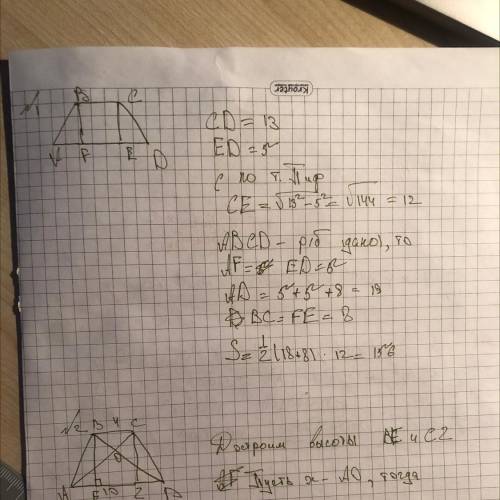 √1
B C
A F E D
CD = 13
ED = 5
по т. Пиф
CE = √13²-5² = √144 = 12
ABCD - р/б (дано), то
AF = ED = 5
AD = 5+5+8 = 18
BC = FE = 8
S = 1/2 (18+8) · 12 = 156
√2 B 4 C
O
A E 10 Z D
Достроим высоты BE и CZ
Пусть x - AO, тогда